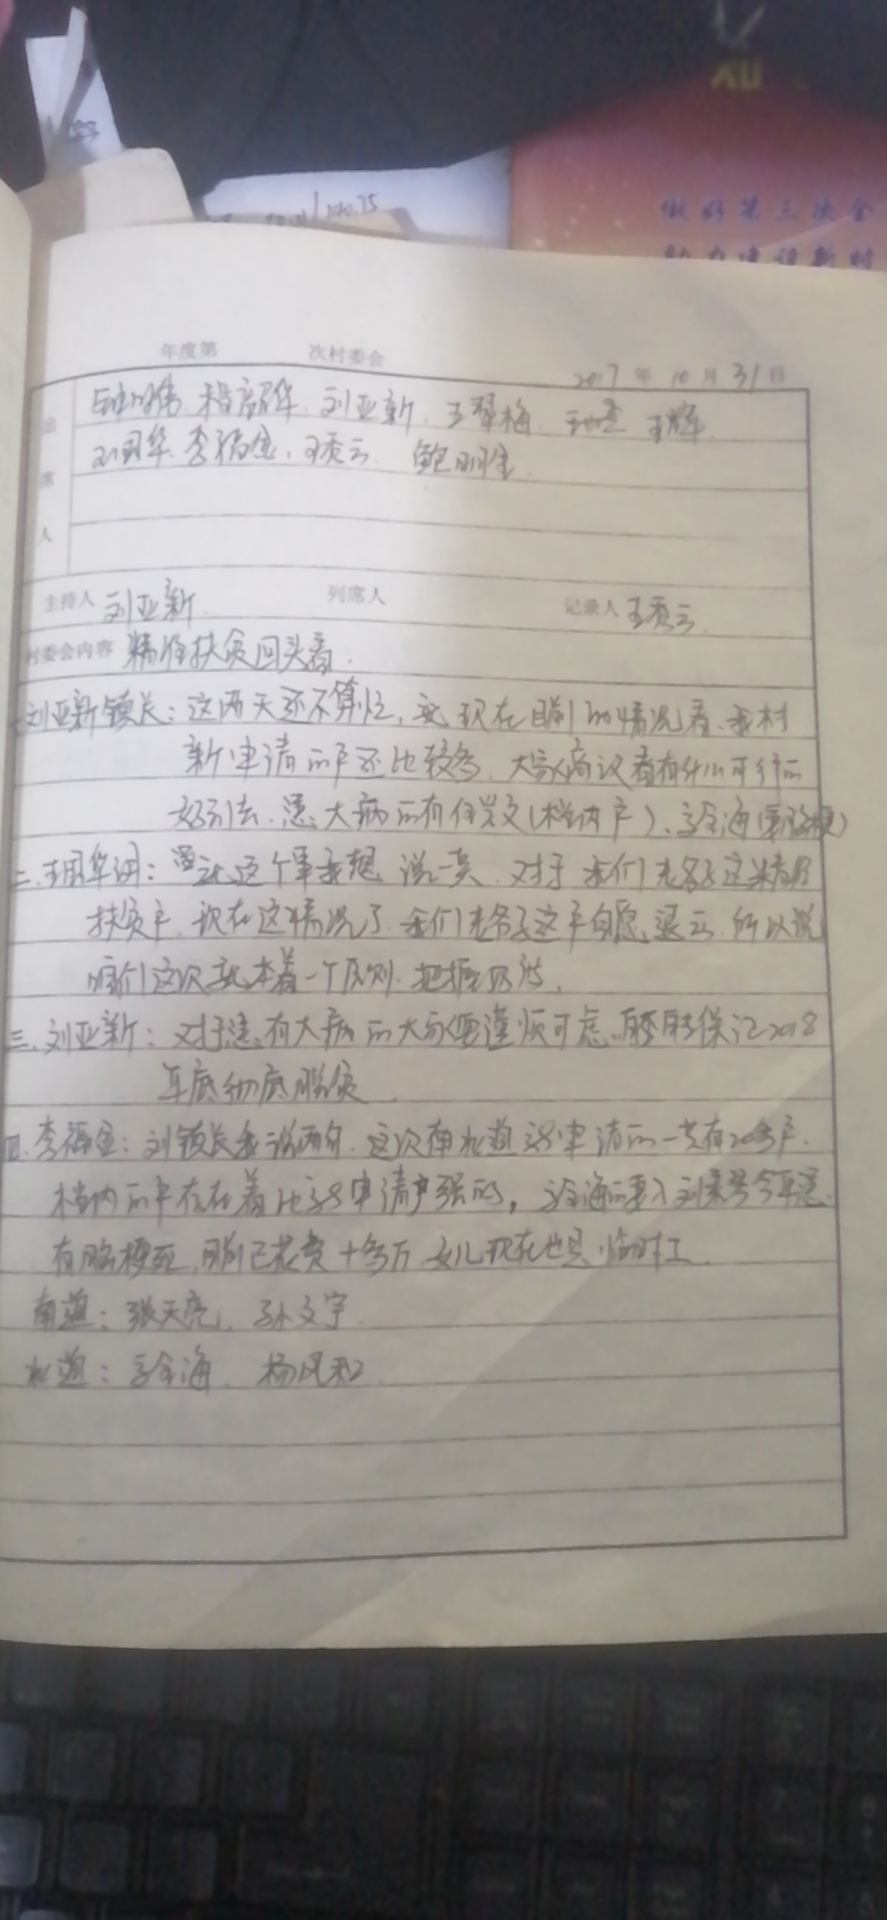 140.75
做好第三次全
助力建设新时
年度第 次村委会
2017年10月31日
出席人
刘亚新 王翠梅 王辉
王国华 李福金 王秀云 鲍明
主持人 刘亚新 列席人 记录人 王秀云
村委会内容 精准扶贫回头看.
刘亚新镇长:这两天还不算忙,就现在目前的情况看,我村
新申请的户还比较多,大家商议看有什么可行的
好办法,患大病的有任兴文(档内户),
二.王国华词:这个事我想说一类.对于我们老爷子这精准
扶贫户,现在这情况了,我们老爷子这户自愿退出,所以说
咱们这次就本着一个原则,把握
三.刘亚新:对于患有大病的大家要谨慎可虑,保证2018
年底彻底脱贫.
四.李福金:刘镇长我说两句,这次南北道申请的一共有20多户.
档内的户存在着比申请户强的,海的妻子刘 今年患
有脑梗死,目前已花费十多万,女儿现在也是临时工.
南道:张天亮、孙文宇.
北道: 海、杨凤和.